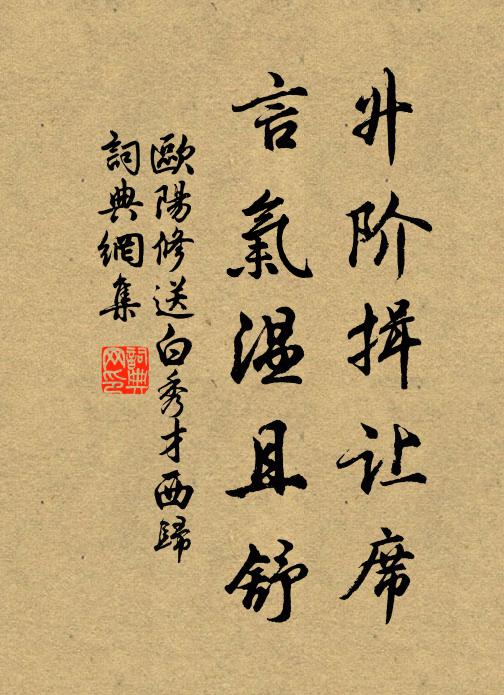 升阶揖让席
言氣温且舒
歐陽修送白秀才西歸
詞典網集
詞典网印